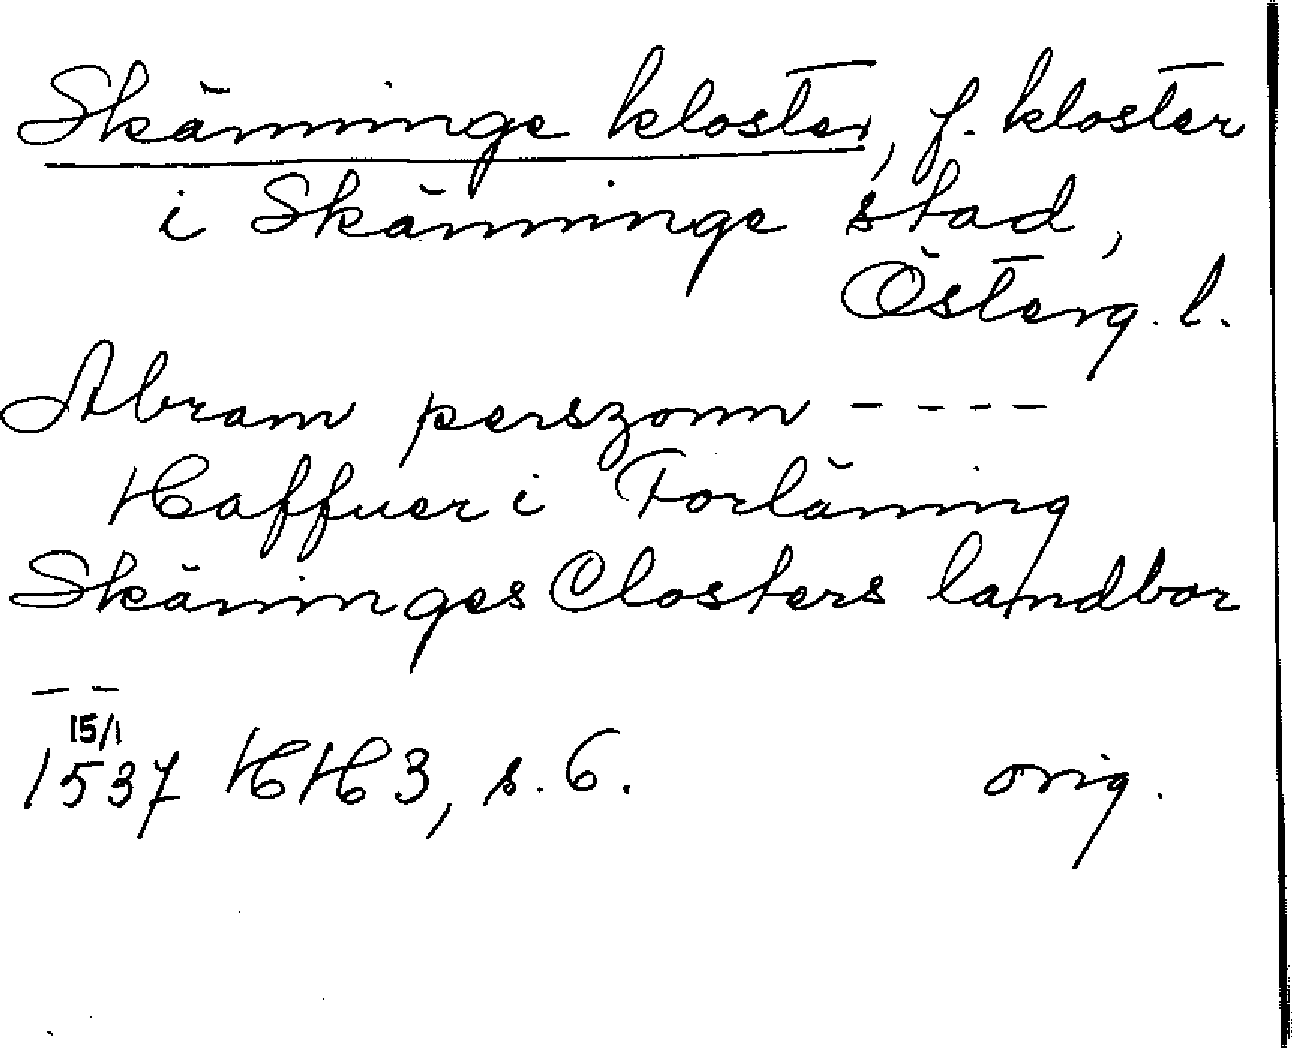 Skänninge kloster, f. kloster
i Skänninge stad,
Österg. l.
Abram perszonn - - - -
Haffuer i Forläning
Skäninges Closters landbor
- -
15/1
1537 HH 3, s. 6. orig.